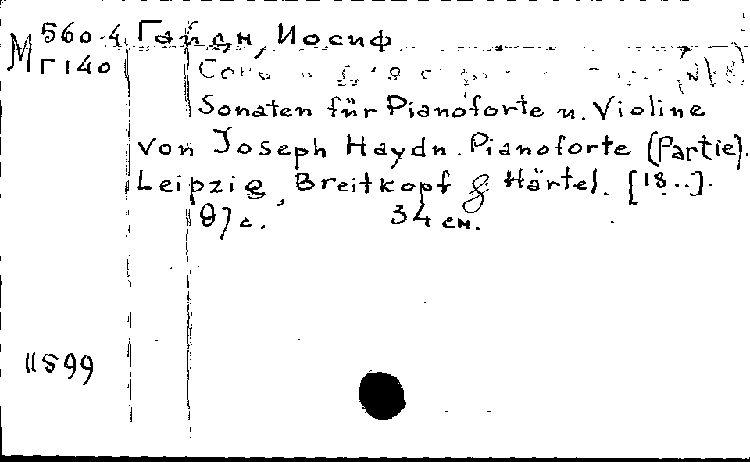 М 560-4 Гайдн, Иосиф
Г140
Sonaten für Pianoforte u. Violine
von Joseph Haydn. Pianoforte (Partie).
Leipzig, Breitkopf & Härtel. [18..].
87 с. 34 см.
11899